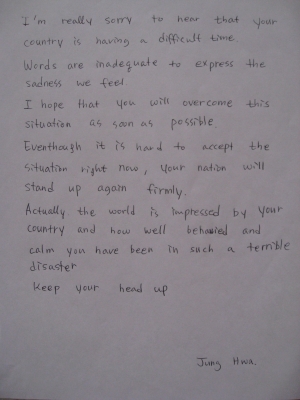 I'm really sorry to hear that your
country is having a difficult time.
Words are inadequate to express the
sadness we feel
I hope that you will overcome this
situation as soon as possible
Eventhough it is hard to accept the
situation right now, your nation will
stand up again firmly.
Actually the world is impressed by your
country and how well behavied and
calm you have been in such a terrible
disaster
Keep your head up
Jung Hwa.